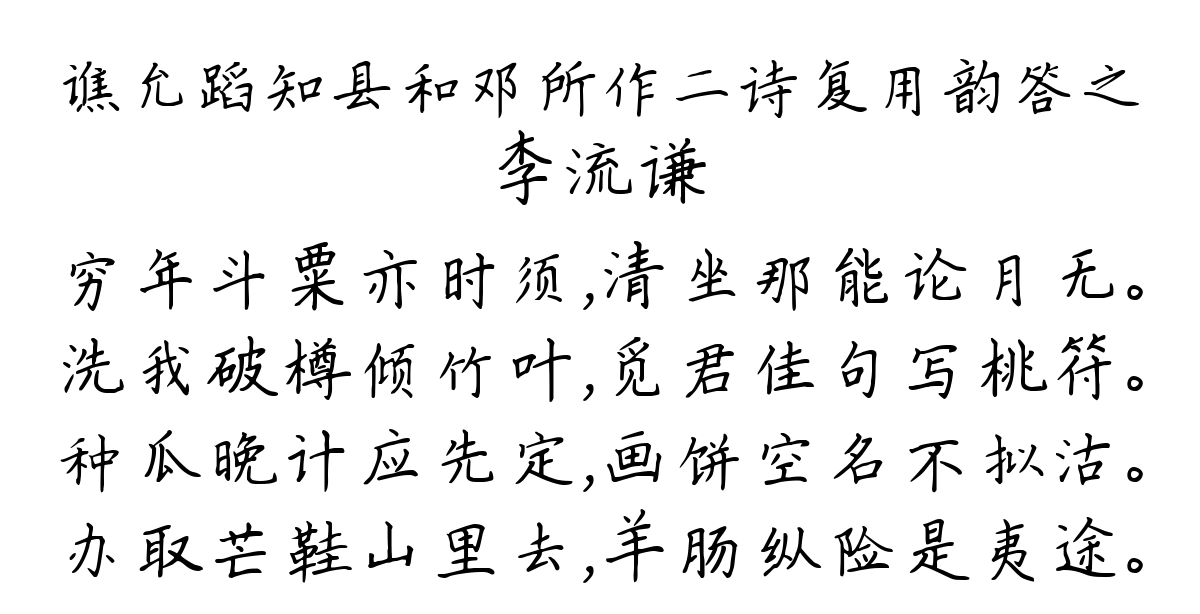 谯允蹈知县和邓所作二诗复用韵答之
李流谦
穷年斗粟亦时须,清坐那能论月无。
洗我破樽倾竹叶,觅君佳句写桃符。
种瓜晚计应先定,画饼空名不拟沽。
办取芒鞋山里去,羊肠纵险是夷途。